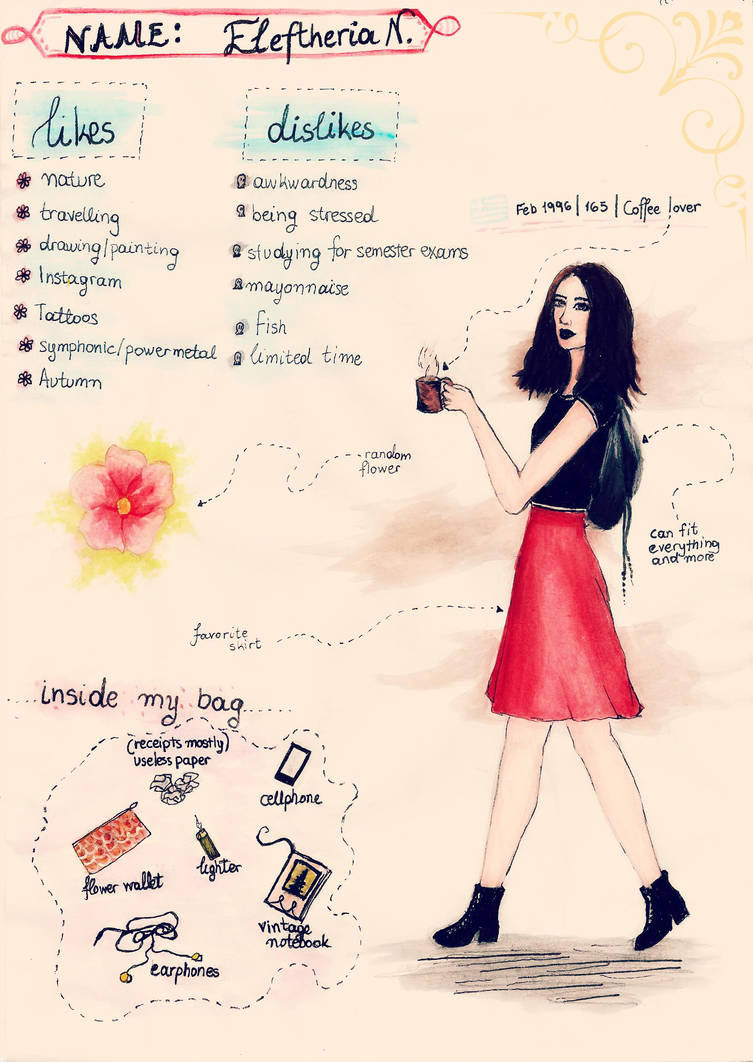 NAME: Eleftheria N.
likes
nature
travelling
drawing/painting
Instagram
Tattoos
symphonic/powermetal
Autumn
dislikes
awkwardness
being stressed
studying for semester exams
mayonnaise
fish
limited time
Feb 1996 | 165 | Coffee lover
random
flower
can fit
everything
and more
favorite
skirt
inside my bag
(receipts mostly)
useless paper
cellphone
flower wallet
lighter
vintage
notebook
earphones